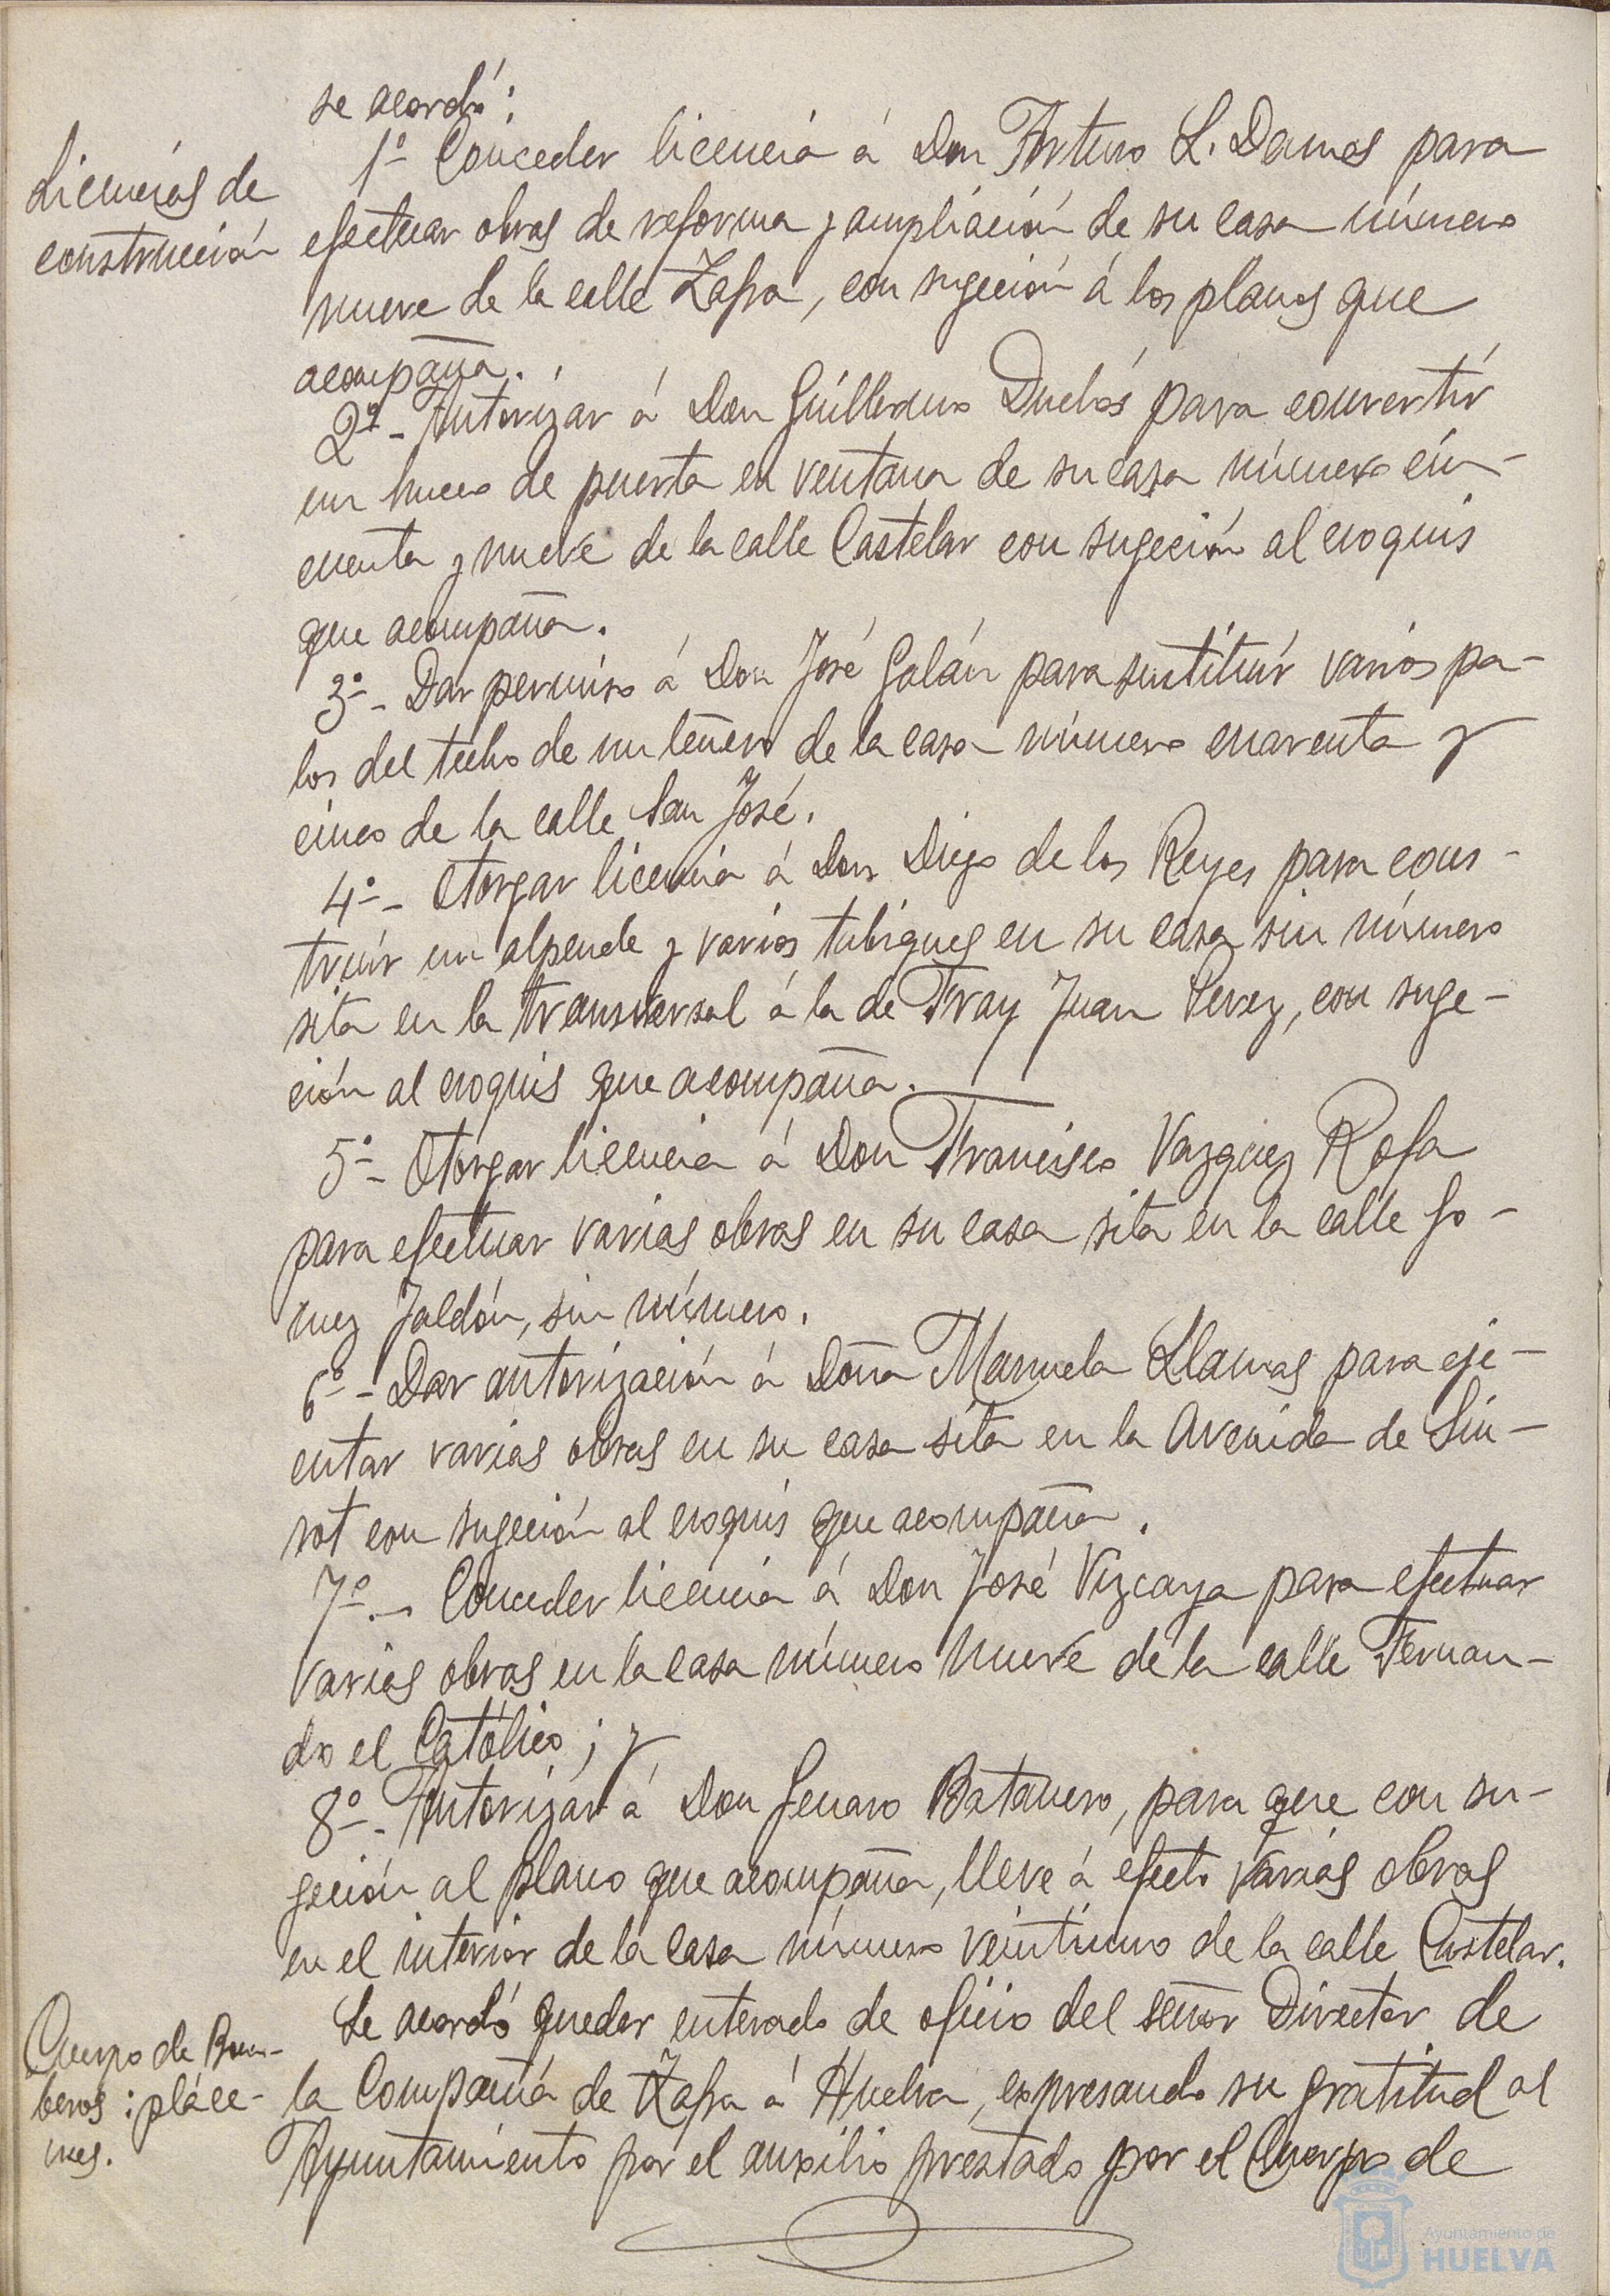 se acordó:
Licencias de
construcción
1º Conceder licencia á Don Arturo L. Damas para
efectuar obras de reforma y ampliación de su casa número
nueve de la calle Zafra, con sugeción á los planos que
acompaña.
2º - Autorizar á Don Guillermo Duclós para convertir
un hueco de puerta en ventana de su casa número cin-
cuenta y nueve de la calle Castelar con sugeción al croquis
que acompaña.
3º - Dar permiso á Don José Galán para sustituir varios pa-
los del techo de un leñero de la casa número cuarenta y
cinco de la calle San José.
4º - Otorgar licencia á Don Diego de los Reyes para cons-
truir un alpende y varios tabiques en su casa sin número
sita en la transversal á la de Fray Juan Perez, con suge-
ción al croquis que acompaña.
5º - Otorgar licencia á Don Francisco Vazquez Rofa
para efectuar varias obras en su casa sita en la calle Go-
mez Jaldón, sin número.
6º - Dar autorización á Doña Manuela Llamas para eje-
cutar varias obras en su casa sita en la Avenida de Sin-
rot con sugeción al croquis que acompaña.
7º - Conceder licencia á Don José Vizcaya para efectuar
varias obras en la casa número nueve de la calle Fernan-
do el Católico; y
8º - Autorizar á Don Genaro Batanero, para que con su-
geción al plano que acompaña, lleve á efecto varias obras
en el interior de la casa número veintiuno de la calle Castelar.
Cuerpo de Bom-
beros: pláce-
mes.
Se acordó quedar enterado de oficio del señor Director de
la Compañía de Zafra á Huelva, expresando su gratitud al
Ayuntamiento por el auxilio prestado por el Cuerpo de
Ayuntamiento de
HUELVA